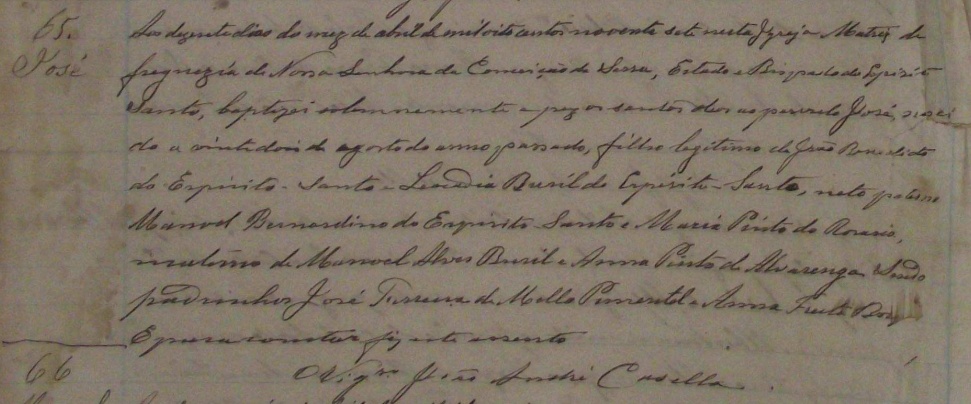 65.
José
Aos dezesete dias do mez de abril de mil oito centos noventa sete nesta Igreja Matriz de
freguezia de Nossa Senhora da Conceição da Serra, Estado e Bispado do Espirito
Santo, baptizei solemnemente e puz os santos oleos ao parvulo José, nasci
do a vinte dois de agosto do anno passado, filho legitimo de João Benedicto
do Espirito-Santo e Leocadia Buril do Espirito-Santo, neto paterno
Manoel Bernardino do Espirito-Santo e Maria Pinto do Rosario,
materno de Manoel Alves Buril e Anna Pinto de Alvarenga. Sendo
padrinhos José Ferreira de Mello Pimentel e Anna
E para constar fiz este assento
Vigro João André Casella.
66